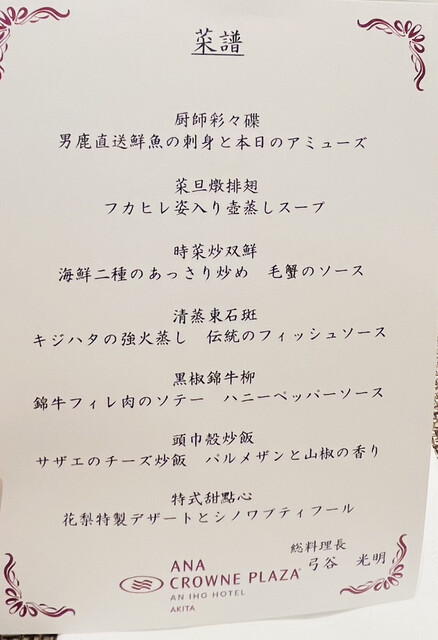 菜譜
厨師彩々碟
男鹿直送鮮魚の刺身と本日のアミューズ
菜旦燉排翅
フカヒレ姿入り壺蒸しスープ
時菜炒双鮮
海鮮二種のあっさり炒め 毛蟹のソース
清蒸東石斑
キジハタの強火蒸し 伝統のフィッシュソース
黒椒錦牛柳
錦牛フィレ肉のソテー ハニーペッパーソース
頭巾殻炒飯
サザエのチーズ炒飯 パルメザンと山椒の香り
特式甜點心
花梨特製デザートとシノワプティフール
総料理長
弓谷 光明
ANA
CROWNE PLAZA®
AN IHG HOTEL
AKITA